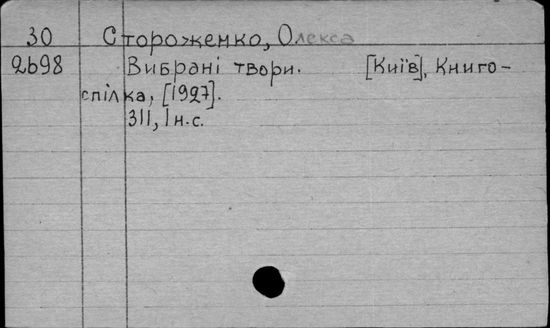 30 Стороженко, Олекса
2698 Вибрані твори. [Київ], Книго-
спілка, [1927].
311, 1 н.с.